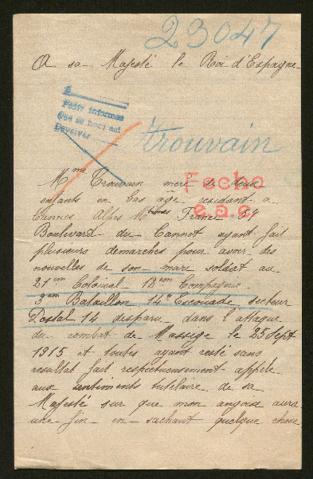 23047
A sa Majesté le Roi d'Espagne
Pedir informes
que se haga así
Devolver
Trouvain
Fecho
e.a.c.
Mme Trouvain mère de deux
enfants en bas âge residant a
Cannes Alpes Mmes France 69
Boulevard du Cannet ayant fait
plusieurs demarches pour avoir des
nouvelles de son mari soldat au
21eme Colonial 12eme Compagnie
3eme Bataillon 14e Escouade secteur
Postal 14 disparu dans l'attaque
du combat de Massige le 25 Sept
1915 et toutes ayant resté sans
resultat fait respectueusement appèle
aux sentiments tutelaire de sa
Majesté sur que mon angoise aura
une fin en sachant quelque chose